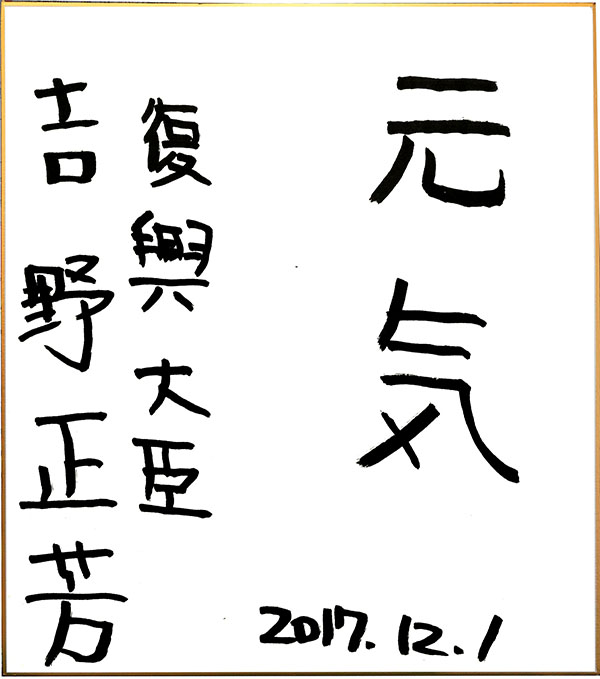 元気
復興大臣
吉野正芳
2017.12.1